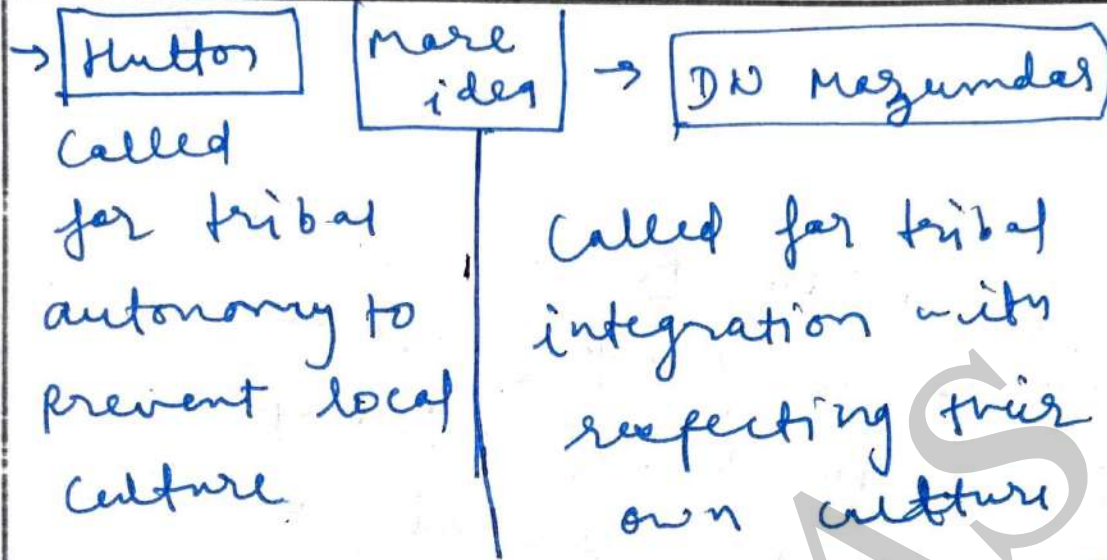 → Hutton
Called
for tribal
autonomy to
prevent local
culture
More
idea
→ DN Mazumdar
Called for tribal
integration with
respecting their
own culture
AS